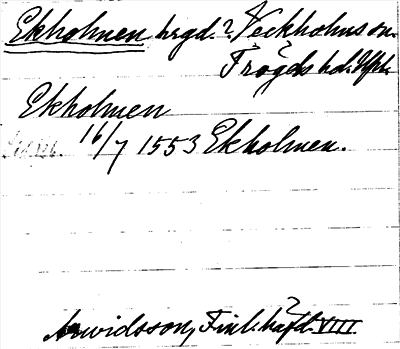 Ekholmen hrgd. i Veckholms sn.
Trögds hd. Upl.
Ekholmen
16/7 1553 Ekholmen.
Arwidsson, Finl. häfd. VIII.